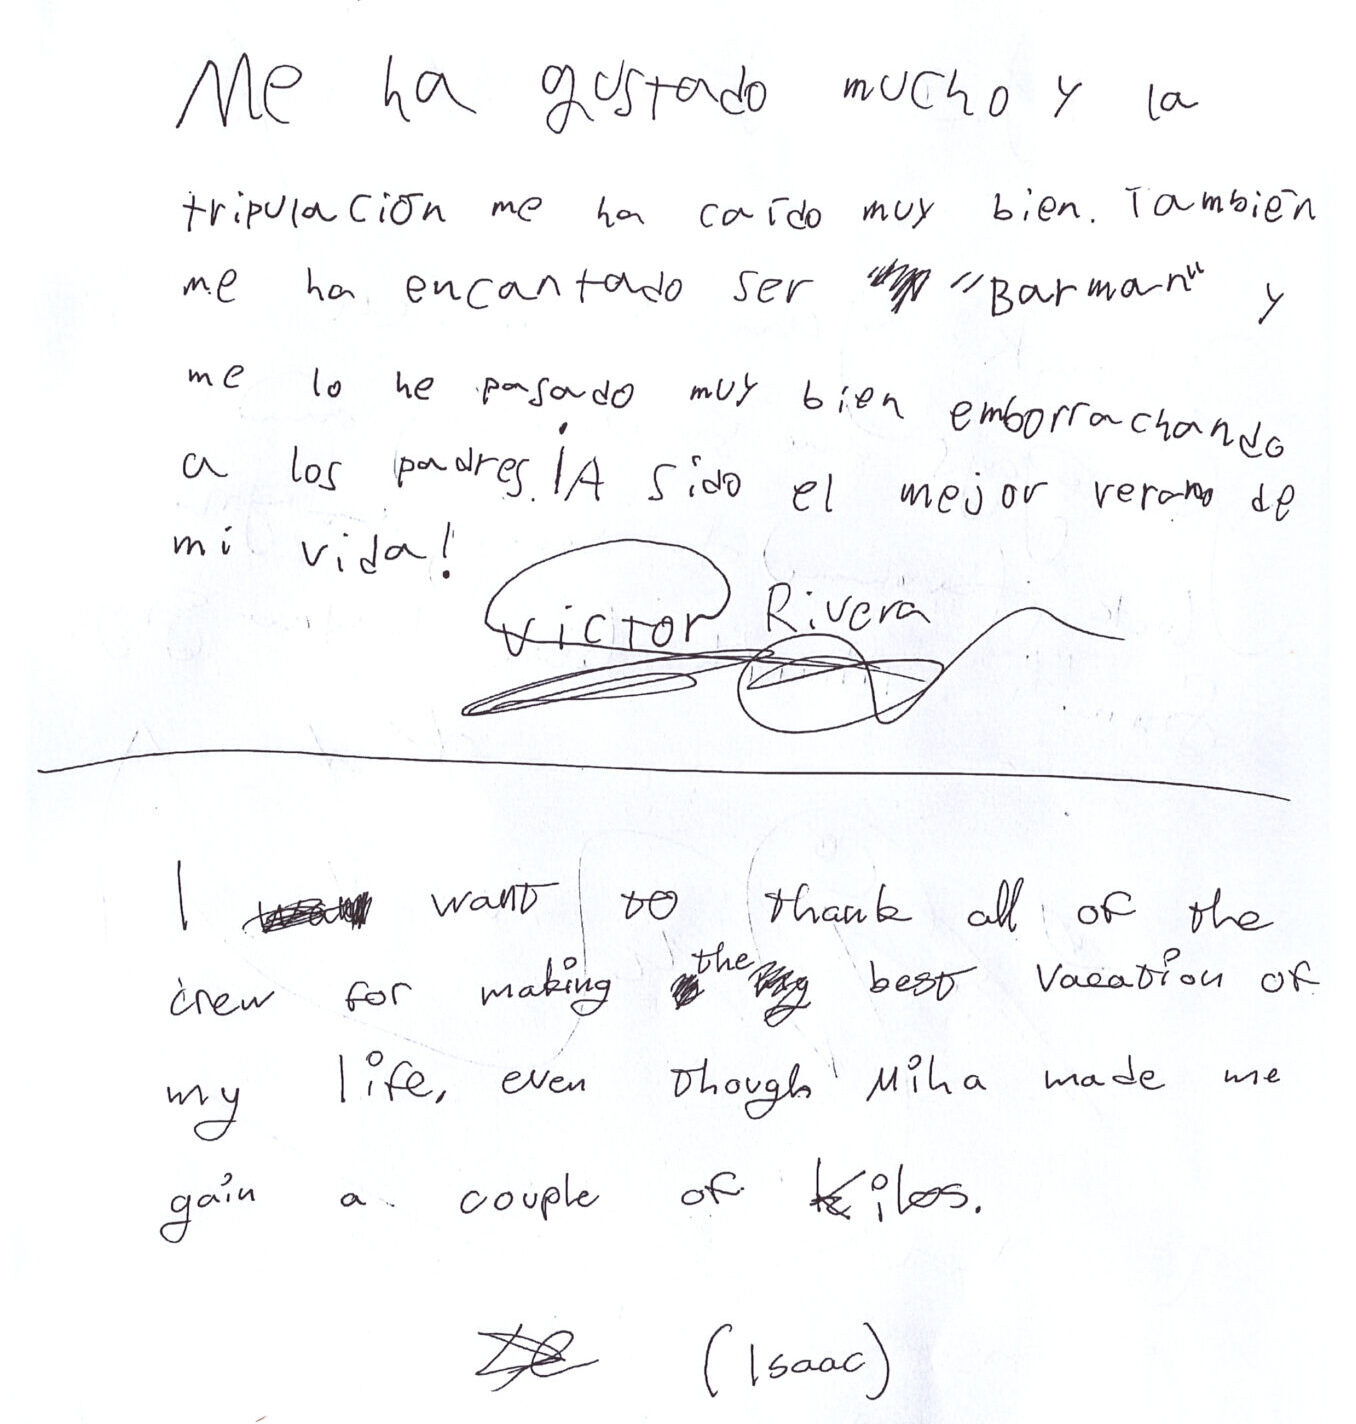 Me ha gustado mucho y la
tripulación me ha caído muy bien. También
me ha encantado ser "Barman" y
me lo he pasado muy bien emborrachando
a los padres. ¡A sido el mejor verano de
mi vida!
Victor Rivera
I want to thank all of the
crew for making the best vacation of
my life, even though Miha made me
gain a couple of kilos.
(Isaac)